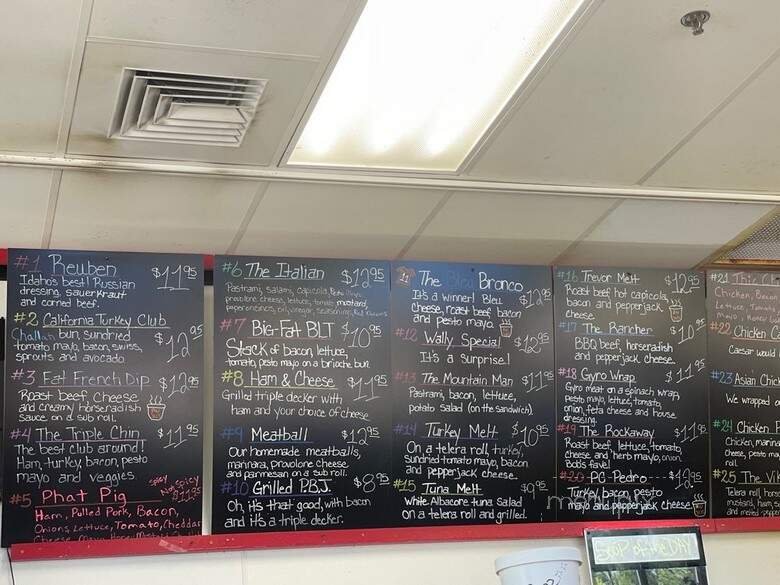 #1 Reuben $11.95
Idaho's best! Russian
dressing, sauerkraut
and corned beef.
#2 California Turkey Club $12.95
Challah bun, sundried
tomato mayo, bacon, swiss,
sprouts and avocado
#3 Fat French Dip $12.95
Roast beef, cheese
and creamy horseradish
sauce on a sub roll.
#4 The Triple Chin $11.95
The best club around!
Ham, turkey, bacon, pesto
mayo and veggies.
#5 Phat Pig
Spicy
Not Spicy
Ham, Pulled Pork, Bacon,
Onions, Lettuce, Tomato, Cheddar
Cheese, Mayo
#6 The Italian $12.95
Pastrami, salami, capicola,
provolone cheese, lettuce, tomato, mustard,
pepperoncinis, oil, vinegar, seasoning,
#7 Big-Fat BLT $10.95
Stack of bacon, lettuce,
tomato, pesto mayo on a brioche bun.
#8 Ham & Cheese $11.95
Grilled triple decker with
ham and your choice of cheese.
#9 Meatball $12.95
Our homemade meatballs,
marinara, provolone cheese
and parmesan on a sub roll.
#10 Grilled P.B.J. $8.95
Oh, it's that good, with bacon
and it's a triple decker.
The Bleu Bronco $12.95
It's a winner! Bleu
cheese, roast beef, bacon
and pesto mayo.
#12 Wally Special $12.95
It's a surprise!
#13 The Mountain Man $11.95
Pastrami, bacon, lettuce,
potato salad (on the sandwich)
#14 Turkey Melt $10.95
On a telera roll, turkey,
sundried tomato mayo, bacon
and pepperjack cheese.
#15 Tuna Melt $9.95
White Albacore tuna salad
on a telera roll and grilled.
#16 Trevor Melt $12.95
Roast beef, hot capicola,
bacon and pepperjack
cheese.
#17 The Rancher $10.95
BBQ beef, horseradish
and pepperjack cheese.
#18 Gyro Wrap $11.95
Gyro meat on a spinach wrap,
pesto mayo, lettuce, tomato,
onion, feta cheese and house
dressing.
#19 The Rockaway $11.95
Roast beef, lettuce, tomato,
cheese and herb mayo, onion.
Bob's fave!
#20 PG Pedro
Turkey, bacon, pesto
mayo and pepperjack cheese
#21
Chicken, Bacon
Lettuce, Tomato,
#22 Chicken
Caesar would
#23 Asian
We wrapped
#24 Chicken
Chicken, marin
cheese, pesto
roll
#25 The
Telera roll,
mustard, ham,
and melted
Soup of the Day